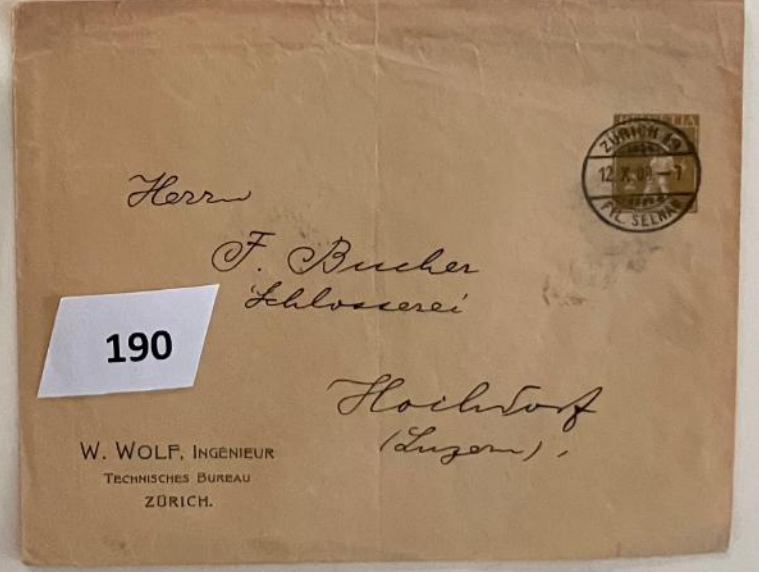 HELVETIA
ZÜRICH 19
12.X.09.—7
FIL. SELNAU
Herrn
F. Bucher
Schlosserei
Hochdorf
(Luzern),
190
W. WOLF, INGENIEUR
TECHNISCHES BUREAU
ZÜRICH.